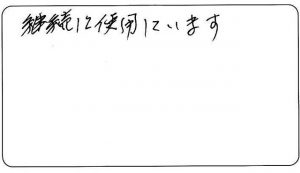 継続に使用しています